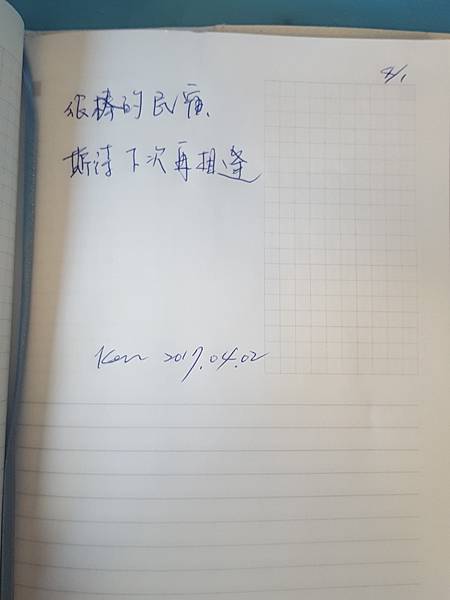 很棒的民宿、
期待下次再相逢
Ken 2017.04.02